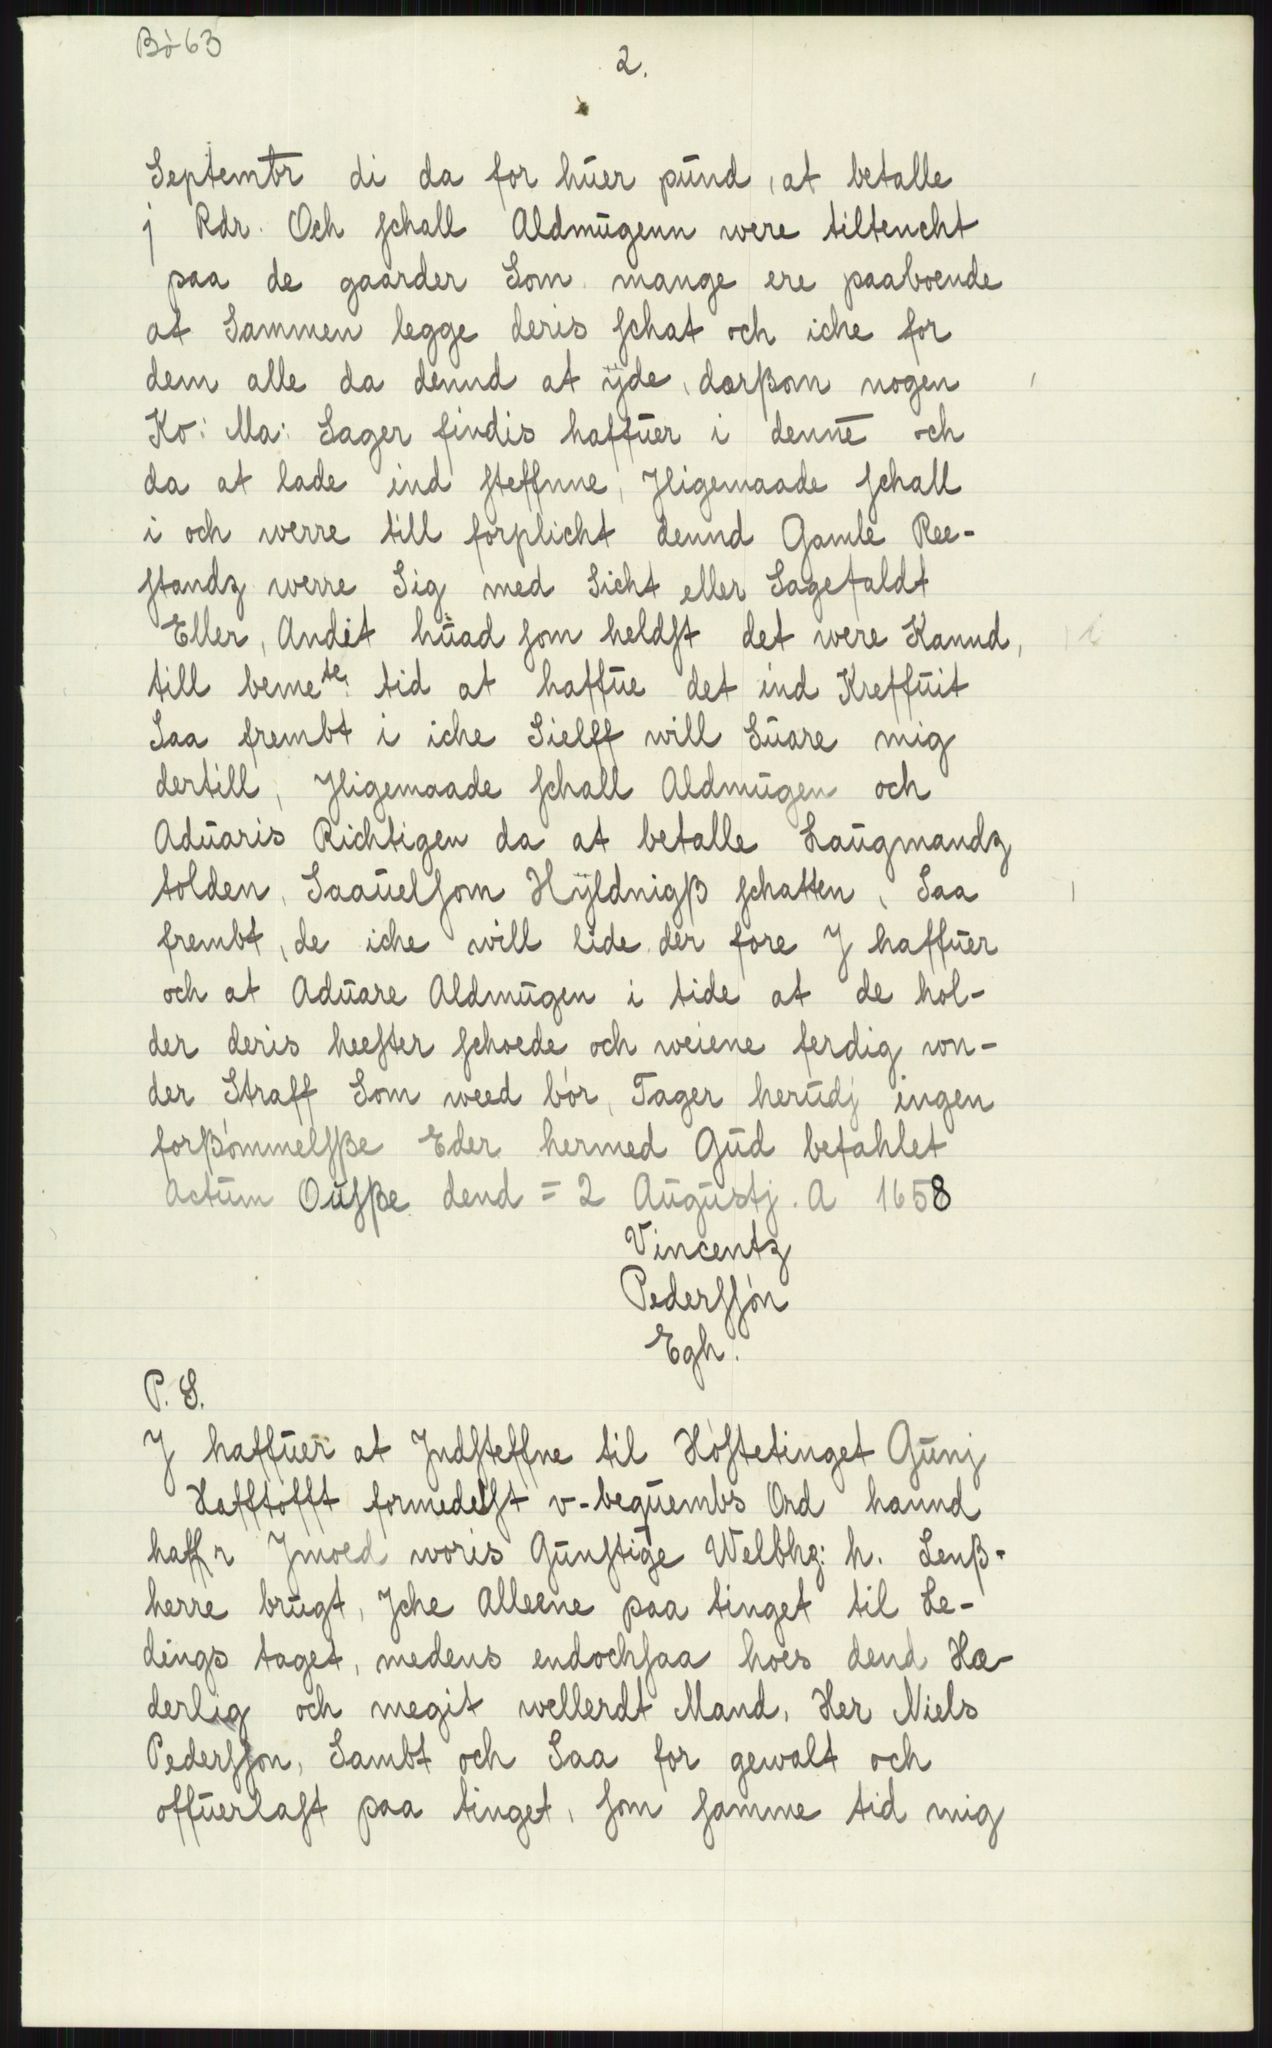 Bö 63
2.
Septembr di da for huer pund, at betalle
j Rdr. Och schall Aldmugenn were tiltencht
paa de gaarder Som mange ere paaboende
at Sammen legge deris schat och iche for
dem alle da dennd at ÿde, dersom nogen
Ko: Ma: Sager findis haffuer i denne och
da at lade ind steffnne, Jligemaade schall
i och werre till forplicht dennd Gamle Ree-
standz werre Sig med Sicht eller Sagefaldt
Eller, Andet huad som heldst det were Kannd,
till beme te: tid at haffue det ind Kreffuit
Saa frembt i iche Sielff will Suare mig
dertill, Jligemaade schall Aldmugen och
Aduaris Richtigen da at betalle Laugmandz
tolden, Saauelsom Hÿldnigß schatten, Saa
frembt, de iche will lide der fore J haffuer
och at Aduare Aldmugen i tide at de hol-
der deris heester schoede och weiene ferdig von-
der Straff Som weed bör, Tager herudj ingen
forßömmelsße Eder hermed Gud befahlet
Actum Ousße dend = 2 Augustj. A 1658
Vincentz
Pederssön
Egh.
P. S.
J haffuer at Jndsteffne til Höstetinget Gunj
Hafftofft formedelst v-bequembs Ord hannd
haffr Jmoed woris Gunstige Welbhg: h. Lenß-
herre brugt, Jche Alleene paa tinget til Le-
dings taget, medens endochsaa hoes dend Hæ-
derlig och megit wellerdt Mand, Her Niels
Pederssøn, Sambt och Saa for gewalt och
offuerlast paa tinget, som samme tid mig